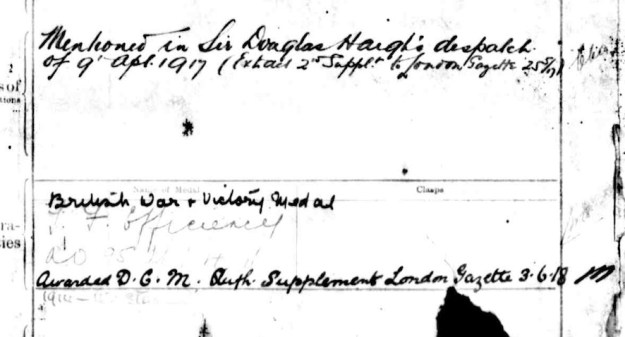 Mentioned in Sir Douglas Haigh's despatch
of 9th Apl. 1917 (Extract 2nd Supplt to London Gazette 25/5/17)
Name of Medal Clasps
British War & Victory Medal
T. F. Efficiency
A.O.
Awarded D.C.M. Auth. Supplement London Gazette 3.6.18